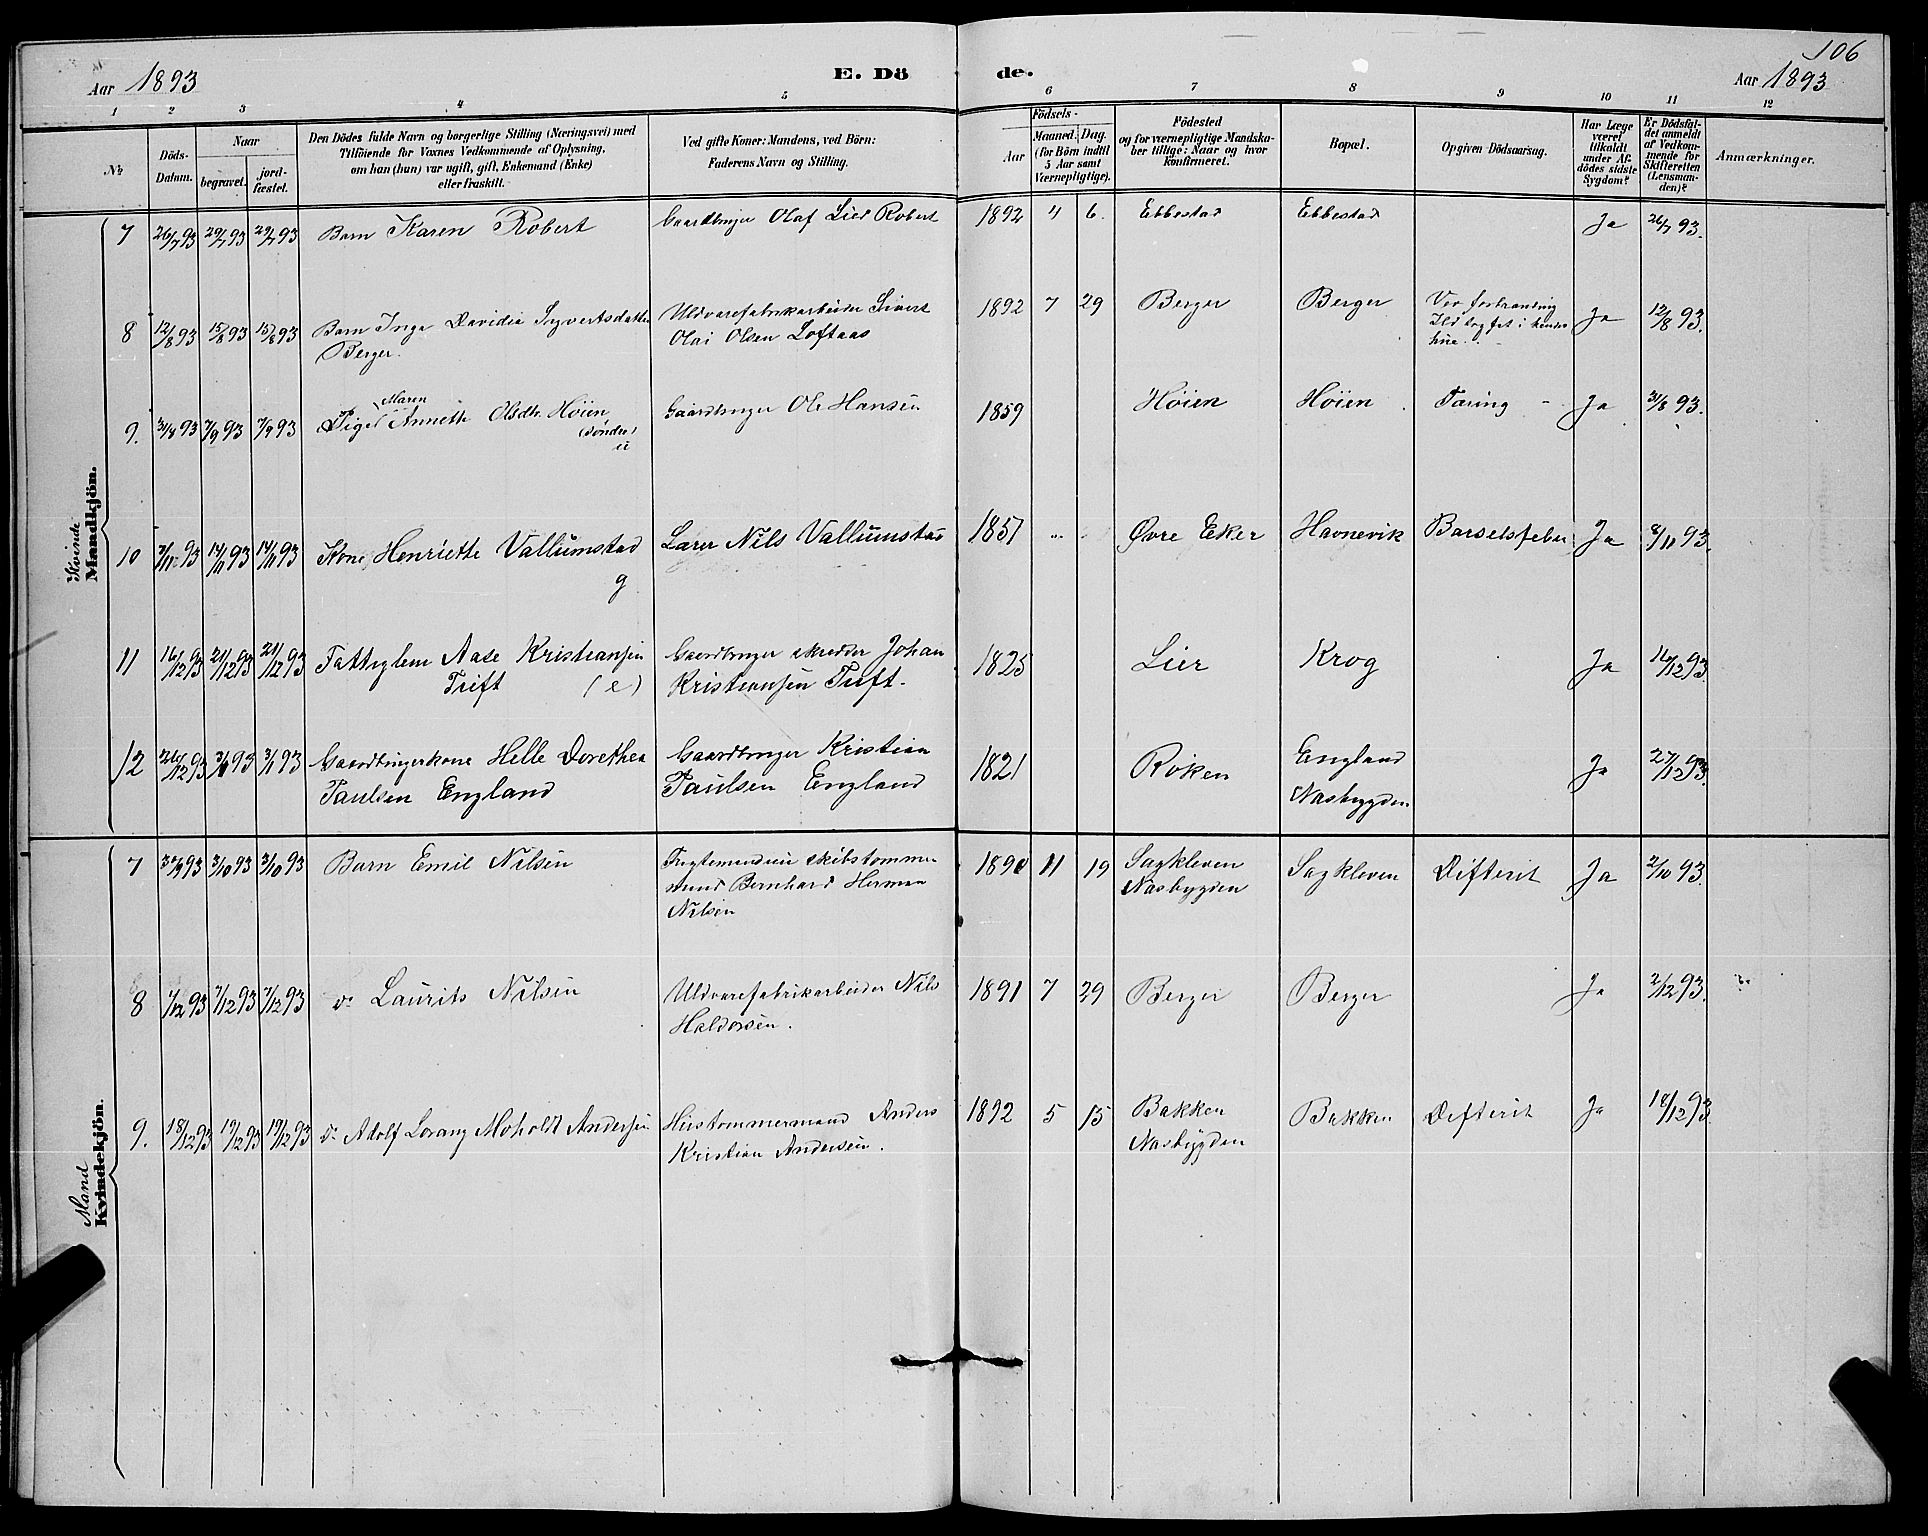 106
Aar 1893
E. Dö
de.
Aar 1893
1 2 3 4 5 6 7 8 9 10 11 12
№
Döds-
Datum.
Naar
begravet.
jord-
fæstet.
Den Dödes fulde Navn og borgerlige Stilling (Næringsvei) med
Tilföiende for Voxnes Vedkommende af Oplysning,
om han (hun) var ugift, gift, Enkemand (Enke)
eller fraskilt.
Ved gifte Koner: Mandens, ved Börn:
Faderens Navn og Stilling.
Födsels-
Aar
Maaned. Dag.
(for Börn indtil
5 Aar samt
Værnepligtige).
Födested
og for værnepligtige Mandska-
ber tillige: Naar og hvor
konfirmeret.
Bopæl.
Opgiven Dödsaarsag.
Har Læge
været
tilkaldt
under Af-
dödes sidste
Sygdom?
Er Dödsfal-
det anmeldt
af Vedkom-
mende for
Skifteretten
(Lensman-
den)?
Anmærkninger.
Kvinde
Mandkjön.
7 26/7 93 29/7 93 29/7 93 Barn Karen Robert Gaardbruger Olaf Lied Robert 1892 4 6. Ebbestad Ebbestad Ja 26/7 93.
8 12/8 93 15/8 93 15/8 93 Barn Inga Davidia Syvertsdatter Uldvarefabrikarbeider Sivert 1892 7 29 Berger Berger Ved forbrænding Ja 12/8 93.
Berger. Olai Olsen Loftaas Ild tog fat i hendes
hue.
Maren
9. 31/8 93 7/9 93 7/9 93 Pige Annette Olsdtr. Höien Gaardbruger Ole Hansen 1859 Höien Höien Tæring - Ja 31/8 93.
(søndre)
u
10 7/11 93 14/11 93 14/11 93 Kone Henriette Vallumstad Lærer Nils Vallumstad 1851 Øvre Eker Havnevik Barselsfeber Ja 8/11 93.
g
11 16/12 93 21/12 93 21/12 93 Fattiglem Aase Kristiansen Gaardbruger skredder Johan 1825 Lier Krog Ja 16/12 93.
Tuft (e) Kristiansen Tuft.
12 26/12 93 3/1 93 3/1 93 Gaardbrugerkone Helle Dorethea Gaardbruger Kristian 1821 Röken England Ja 27/12 93.
Paulsen England Paulsen England Nasbygden
Mand
Kvindekjön.
7 3/10 93 3/10 93 Barn Emil Nilsen skibstømmer- 11 19 Sagkleven Sagkleven Difterit Ja 2/10 93.
mand Bernhard Herman Nasbygden
Nilsen
8 1/12 93 7/12 93 7/12 93 do Laurits Nilsen Uldvarefabrikarbeider Nils 1891 7 29 Berger Berger Ja 2/12 93.
Haldorsen.
9. 18/12 93 19/12 93 19/12 93 do Adolf Lorang Moholdt Andersen Hustømmermand Anders 1892 5 15 Bakken Bakken Difterit Ja 18/12 93.
Kristian Andersen. Nasbygden